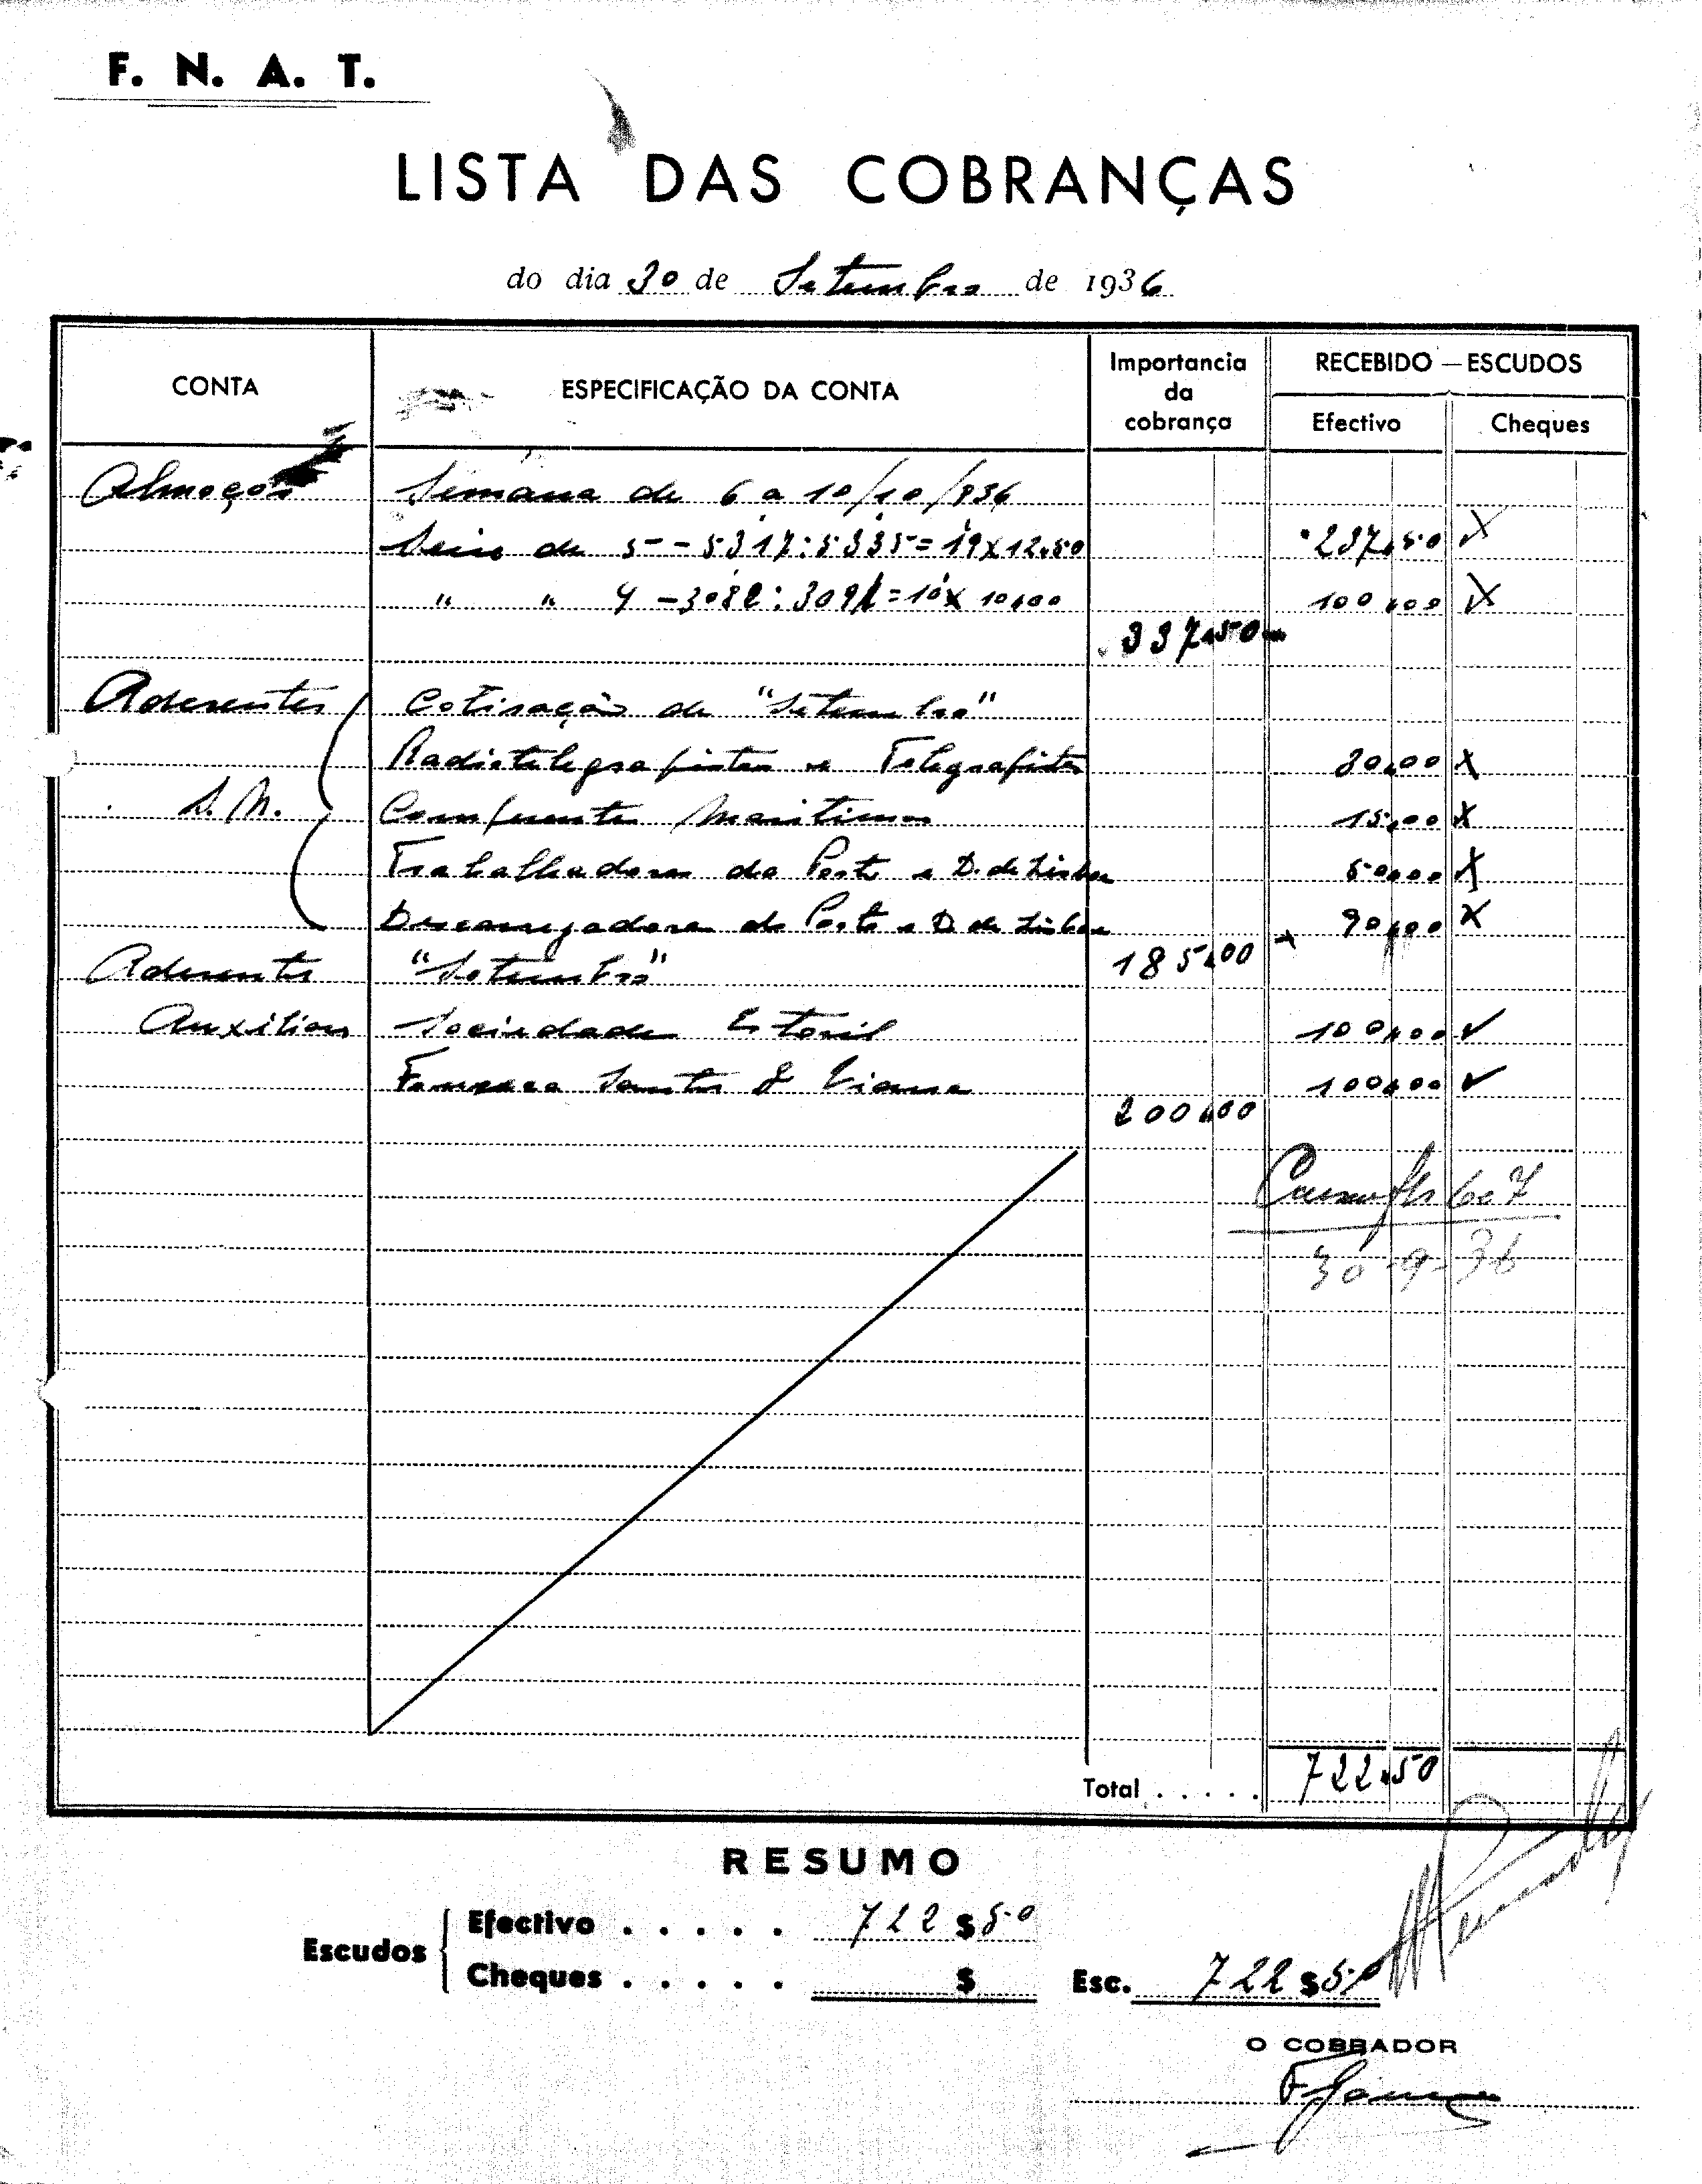 F. N. A. T.
LISTA DAS COBRANÇAS
do dia 30 de Setembro de 1936
CONTA
ESPECIFICAÇÃO DA CONTA
Importancia da cobrança
RECEBIDO — ESCUDOS
Efectivo
Cheques
Almoços Semana de 6 a 10/10/936
Série de 5 - 5317:5335 = 19 x 12$50 237$50 X
" " 4 - 3082:3091 = 10 x 10$00 100$00 X
337$50
Aderentes Cotisação de "Setembro"
Radiotelegrafistas e Telegrafistas 30$00 X
S. N. Maritimos 15$00 X
Trabalhadores do Porto e D. de Lisboa 50$00 X
Descarregadores do Porto e D. de Lisboa 90$00 X
185$00
Aderentes "Setembro"
Auxiliares Sociedade Estoril 100$00 ✓
Fonseca Santos & Viana 100$00 ✓
200$00
fls 607
30-9-36
Total . . . . . 722$50
RESUMO
Escudos
Efectivo . . . . . 722$50
Cheques . . . . . $
Esc. 722$50
O COBRADOR